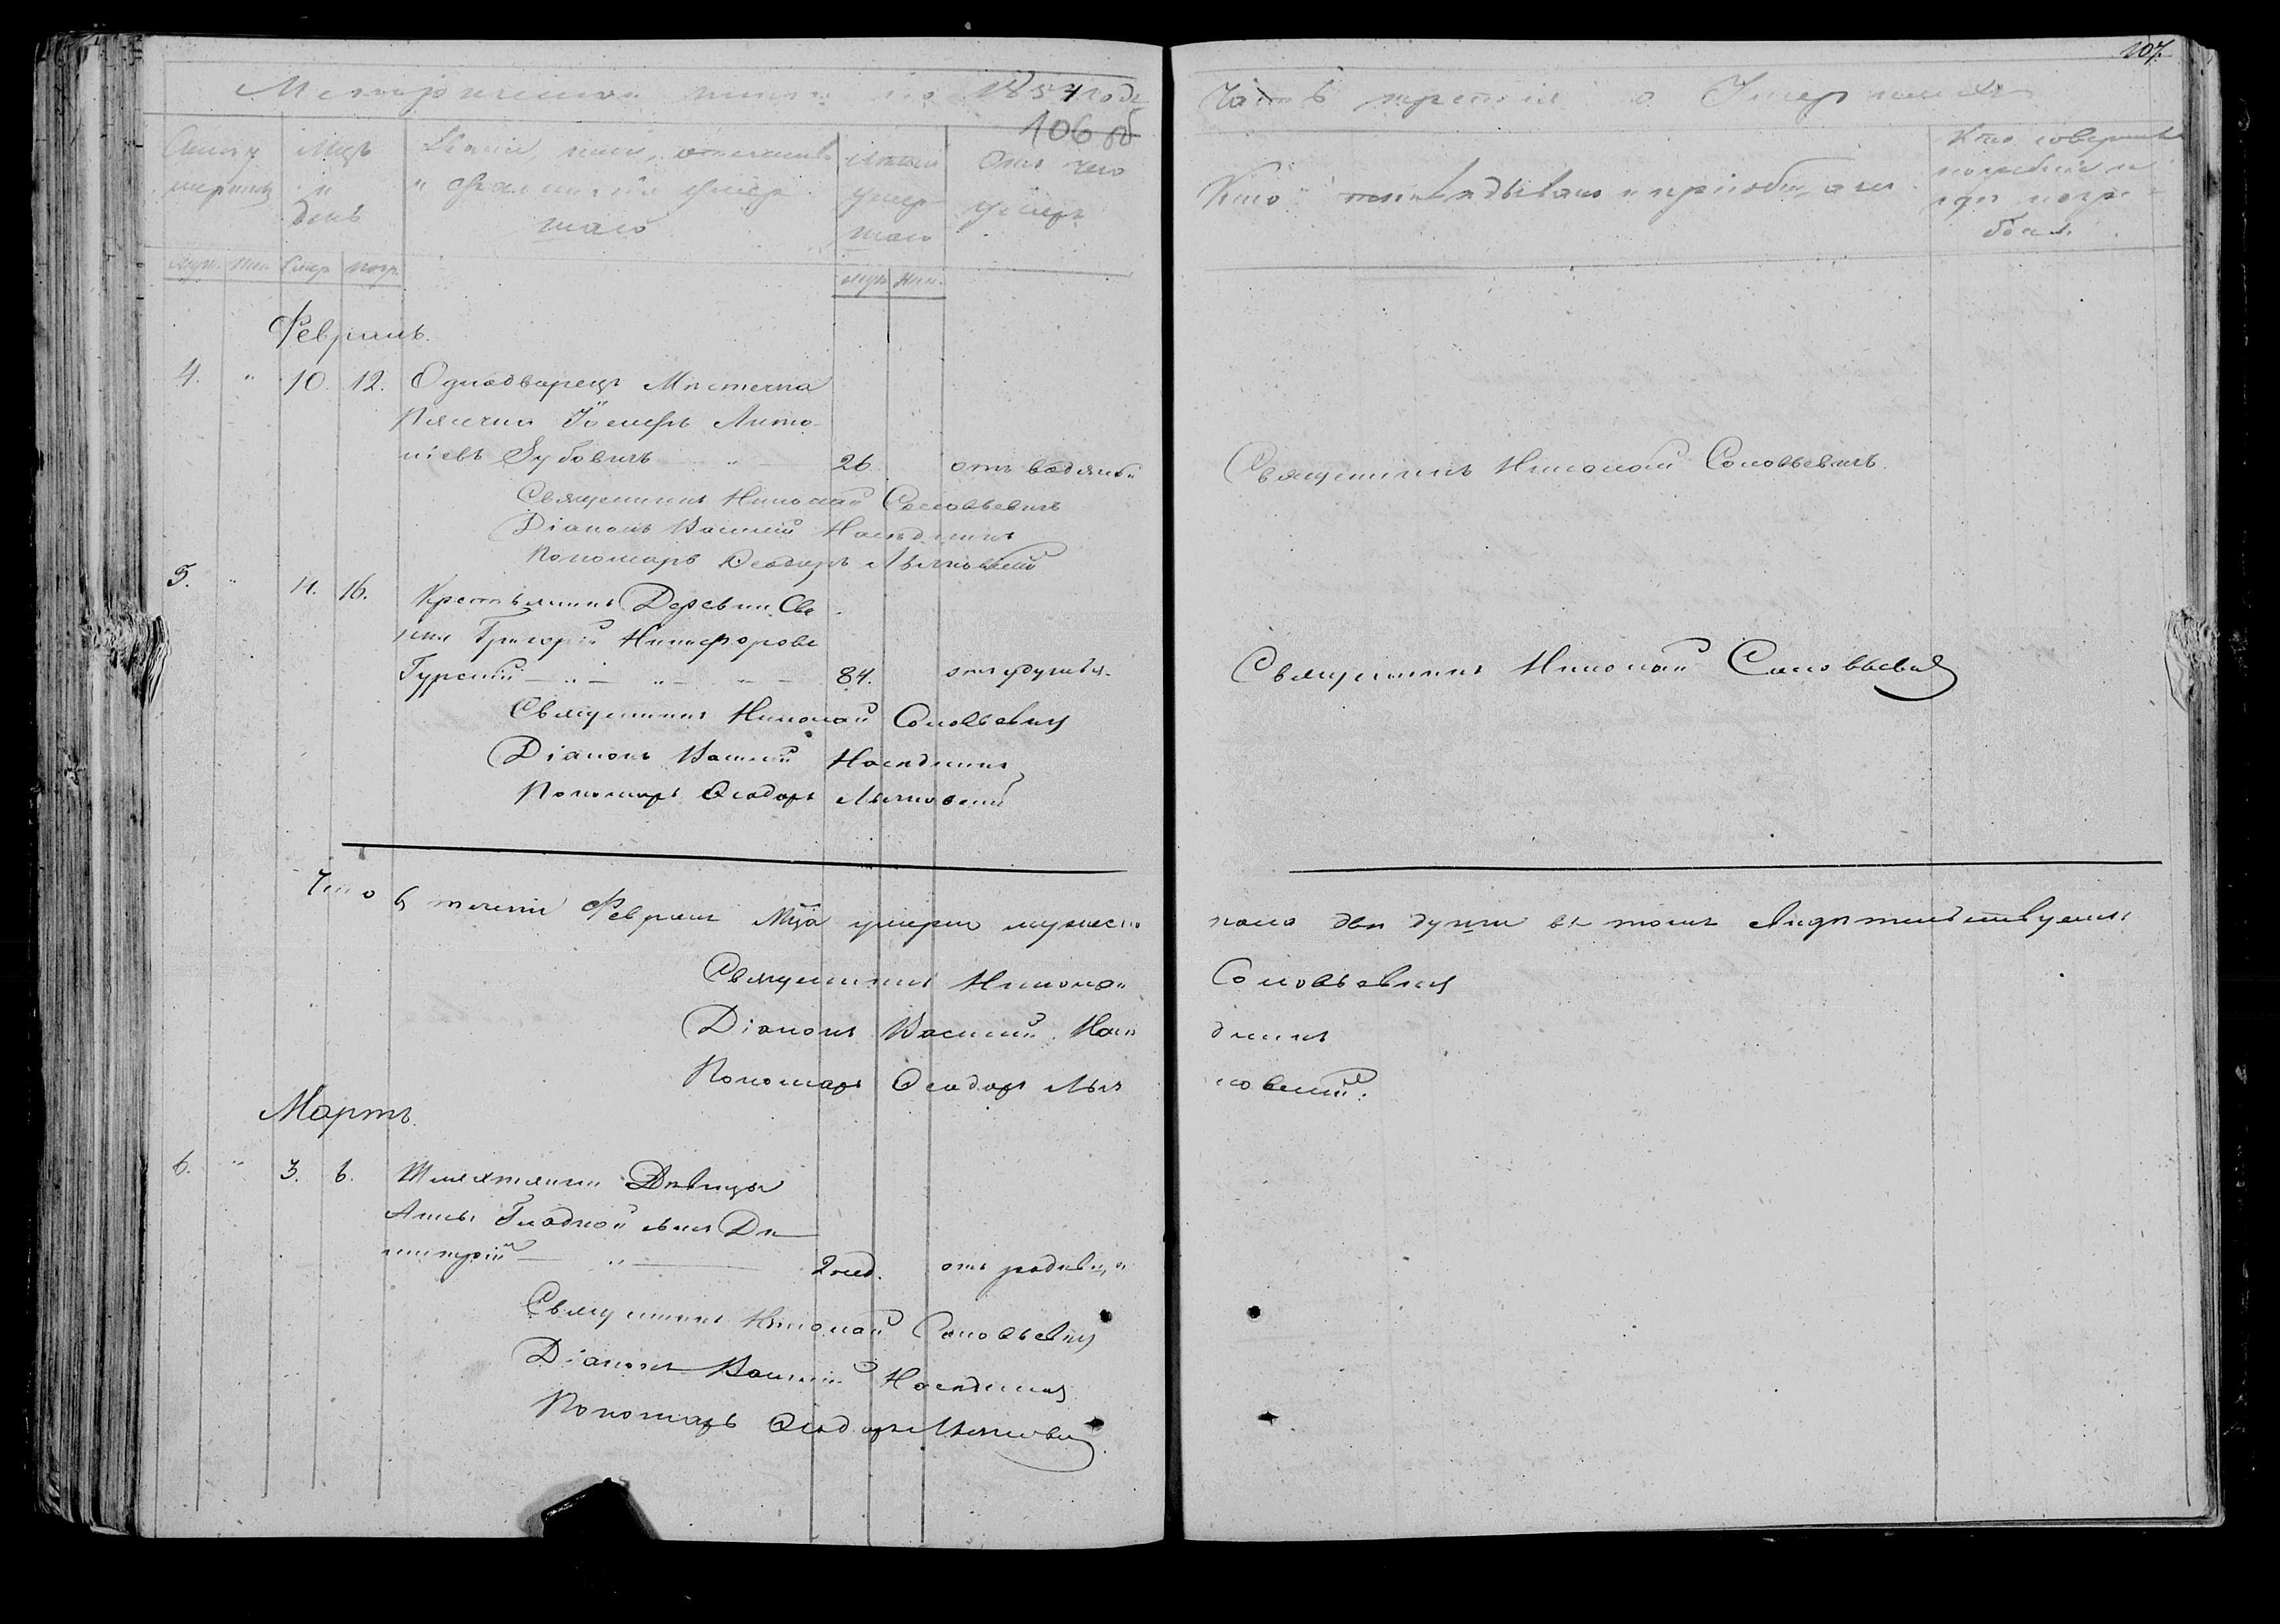 107.
Метрической книги на 1857 года
Часть третія о Умершихъ
106 об
Счетъ умершихъ
Мцъ и день
Званіе, имя, отчество и фамилія умершаго
Лѣта умершаго
Отъ чего умеръ
Кто исповѣдывалъ и пріобщалъ
Кто совершалъ погребеніе и гдѣ погребенъ
Муж. Жен. Умер. погр.
Муж. Жен.
Февраль.
4. " 10. 12. Однодворецъ Мѣстечка
Іосифъ Анто-
ніевъ Зубовичъ " 26. отъ водяной
Священникъ Николай Соловьевичъ.
Священникъ Николай Соловьевичъ
Діаконъ Василій Наслѣдникъ
Пономарь Ѳеодоръ
5. " 14. 16. Крестьянинъ Деревни
Григорій Никифоровъ
Гурский 84. отъ удушья.
Священникъ Николай Соловьевичъ
Священникъ Николай Соловьевичъ
Діаконъ Василій Наслѣдникъ
Пономарь Ѳеодоръ
Что въ теченіи Февраля Мца умерло мужеска
пола двѣ души въ томъ свидѣтельствуемъ
Священникъ Николай Соловьевичъ
Діаконъ Василій Наслѣдникъ
Пономарь Ѳеодоръ
Мартъ.
6. " 3. 6. Шляхтянки Дѣвицы
Анны Гладкой сынъ Ди-
митрій " 2 нед. отъ родимца
Священникъ Николай Соловьевичъ
Діаконъ Василій Наслѣдникъ
Пономарь Ѳеодоръ